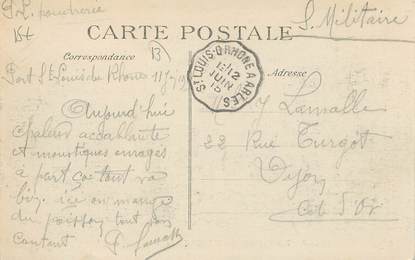 CARTE POSTALE
S. Militaire
Correspondance
Adresse
ST LOUIS-D-RHONE A ARLES
12
JUIN
15
Port St Louis du Rhône 11
Aujourd'hui
chaleur accablante
et moustiques enragés
à part ça tout va
bien. ici on mange
du poisson tout son
contant
Lamalle
22 Rue Turgot
Dijon
Côte d'Or